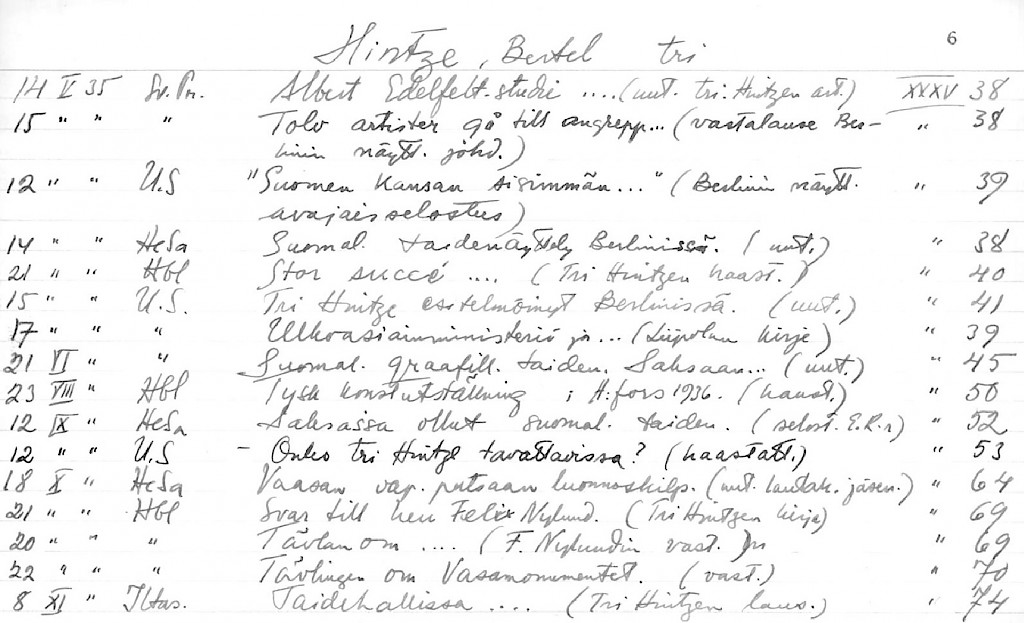 6
Hintze, Bertel tri
14 V 35 Sv.Pr. Albert Edelfelt-studie .... (uut. tri. Hintzen art.) XXXV 38
15 " " " Tolv artister gå till angrepp... (vastalause Ber-
liinin näytt. johd.) " 38
12 " " U.S "Suomen Kansan sisimmän..." (Berliinin näytt.
avajaisselostus) " 39
14 " " HeSa Suomal. taidenäyttely Berliinissä. (uut.) " 38
21 " " Hbl Stor succé .... (Tri Hintzen haast.) " 40
15 " " U.S. Tri Hintze esitelmöinyt Berliinissä. (uut.) " 41
17 " " " Ulkoasiainministeriö ja... (Liipolan kirje) " 39
21 VI " " Suomal. graafill. taiden. Saksaan... (uut.) " 45
23 VIII " Hbl Tysk konstutställning i H:fors 1936. (haast.) " 50
12 IX " HeSa Saksassa ollut suomal. taiden. (selost. E.R.r) " 52
12 " " U.S - Onko tri Hintze tavattavissa? (haastatt.) " 53
18 X " HeSa Vaasan vap. patsaan luonnoskilp. (uut. lautak. jäsen.) " 64
21 " " Hbl Svar till herr Felix Nylund. (Tri Hintzen kirje) " 69
20 " " " Tävlan om .... (F. Nylundin vast.) " 69
22 " " " Tävlingen om Vasamonumentet. (vast.) " 70
8 XI " Iltas. Taidehallissa .... (Tri Hintzen laus.) " 74